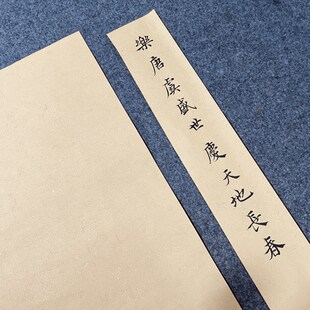 樂唐虞盛世慶天地長春